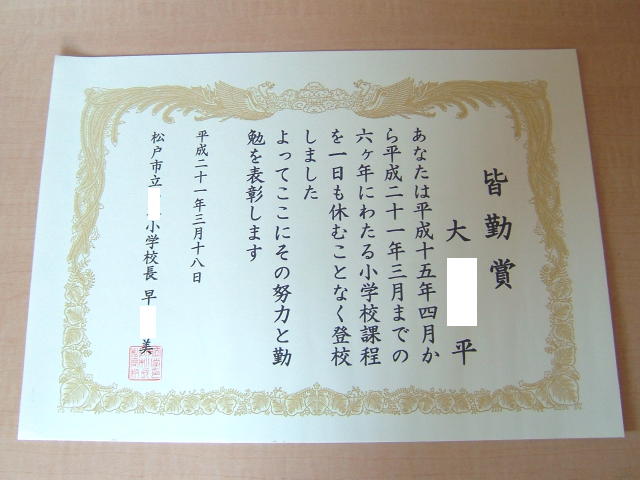 皆勤賞
大 平
あなたは平成十五年四月か
ら平成二十一年三月までの
六ヶ年にわたる小学校課程
を一日も休むことなく登校
しました
よってここにその努力と勤
勉を表彰します
平成二十一年三月十八日
松戸市立 小学校長 早 美